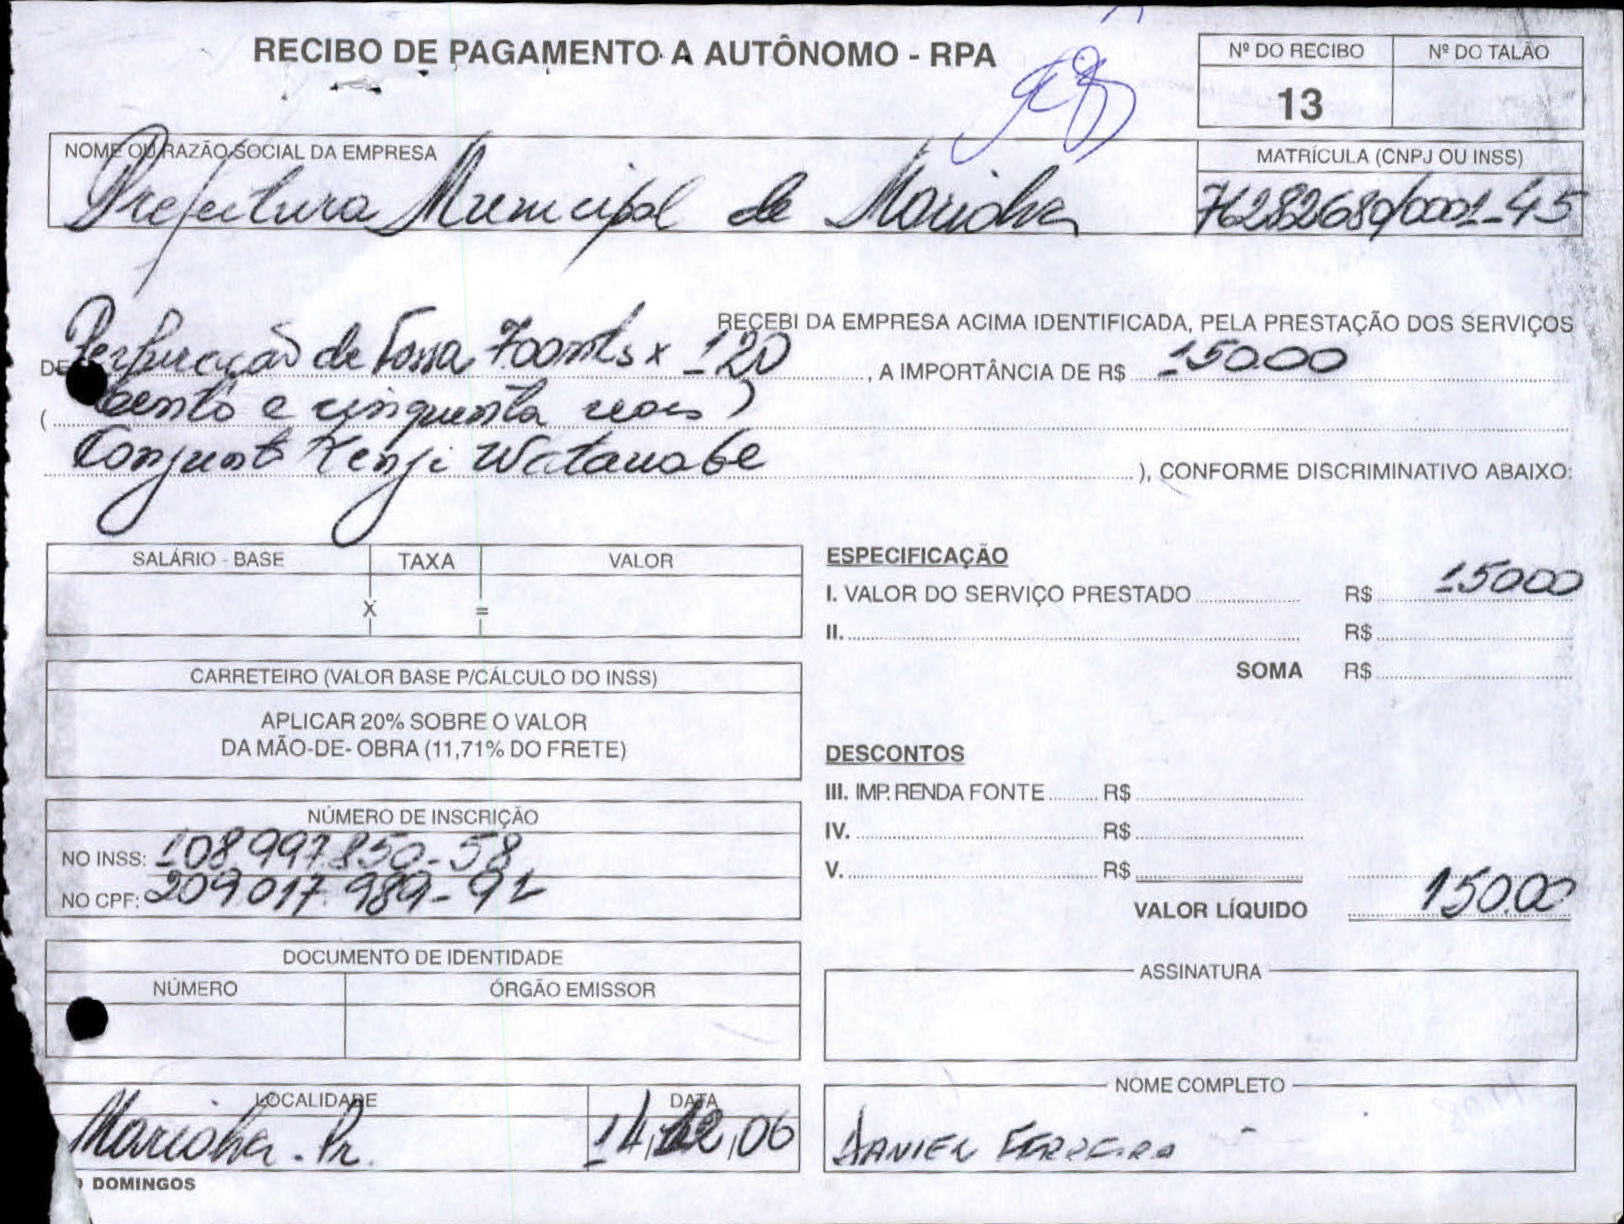 RECIBO DE PAGAMENTO A AUTÔNOMO - RPA
Nº DO RECIBO Nº DO TALÃO
13
NOME OU RAZÃO SOCIAL DA EMPRESA
MATRÍCULA (CNPJ OU INSS)
Prefeitura Municipal de Marialva 76282680/0001-45
RECEBI DA EMPRESA ACIMA IDENTIFICADA, PELA PRESTAÇÃO DOS SERVIÇOS
DE Perfuração de Fossa 700mts x 120, A IMPORTÂNCIA DE R$ 150.00
( cento e cinquenta reais )
Conjunt Kenji Watanabe ), CONFORME DISCRIMINATIVO ABAIXO:
SALÁRIO - BASE TAXA VALOR
X =
CARRETEIRO (VALOR BASE P/CÁLCULO DO INSS)
APLICAR 20% SOBRE O VALOR
DA MÃO-DE-OBRA (11,71% DO FRETE)
NÚMERO DE INSCRIÇÃO
NO INSS: 108.997.850-58
NO CPF: 209.017.989-91
DOCUMENTO DE IDENTIDADE
NÚMERO ÓRGÃO EMISSOR
LOCALIDADE DATA
Marialva - Pr. 14,12,06
DOMINGOS
ESPECIFICAÇÃO
I. VALOR DO SERVIÇO PRESTADO R$ 15000
II. R$
SOMA R$
DESCONTOS
III. IMP. RENDA FONTE R$
IV. R$
V. R$
VALOR LÍQUIDO 150.00
ASSINATURA
NOME COMPLETO
DANIEL FERREIRA